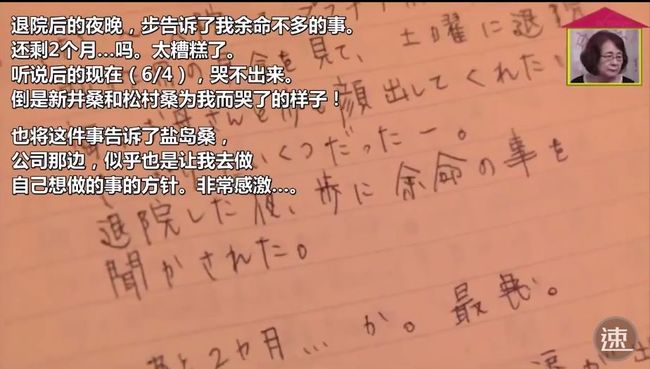 退院后的夜晚，步告诉了我余命不多的事。
还剩2个月…吗。太槽糕了。
听说后的现在（6/4），哭不出来。
倒是新井桑和松村桑为我而哭了的样子！
也将这件事告诉了盐岛桑，
公司那边，似乎也是让我去做
自己想做的事的方针。非常感激…。
を見て、土曜に退院
顔出してくれたい
くつだったー。
退院した夜、歩に余命の事を
聞かされた。
2ヵ月…か。最悪。
速